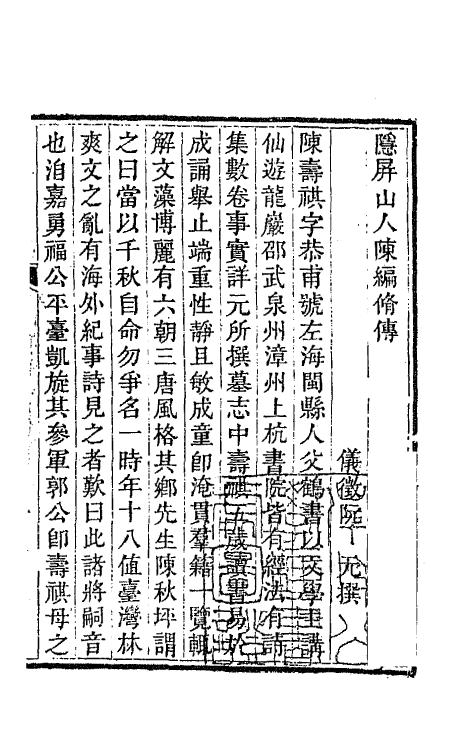 隱屏山人陳編脩傳
儀徵阮元撰
陳壽祺字恭甫號左海閩縣人父鶴書以文學主講
仙遊龍巖邵武泉州漳州上杭書院皆有經法有詩
集數卷事實詳元所撰墓志中壽祺五歲讀書易於
成誦舉止端重性靜且敏成童卽淹貫羣籍一覽輒
解文藻博麗有六朝三唐風格其鄉先生陳秋坪謂
之曰當以千秋自命勿爭名一時年十八值臺灣林
爽文之亂有海外紀事詩見之者歎曰此諸將嗣音
也洎嘉勇福公平臺凱旋其參軍郭公卽壽祺母之